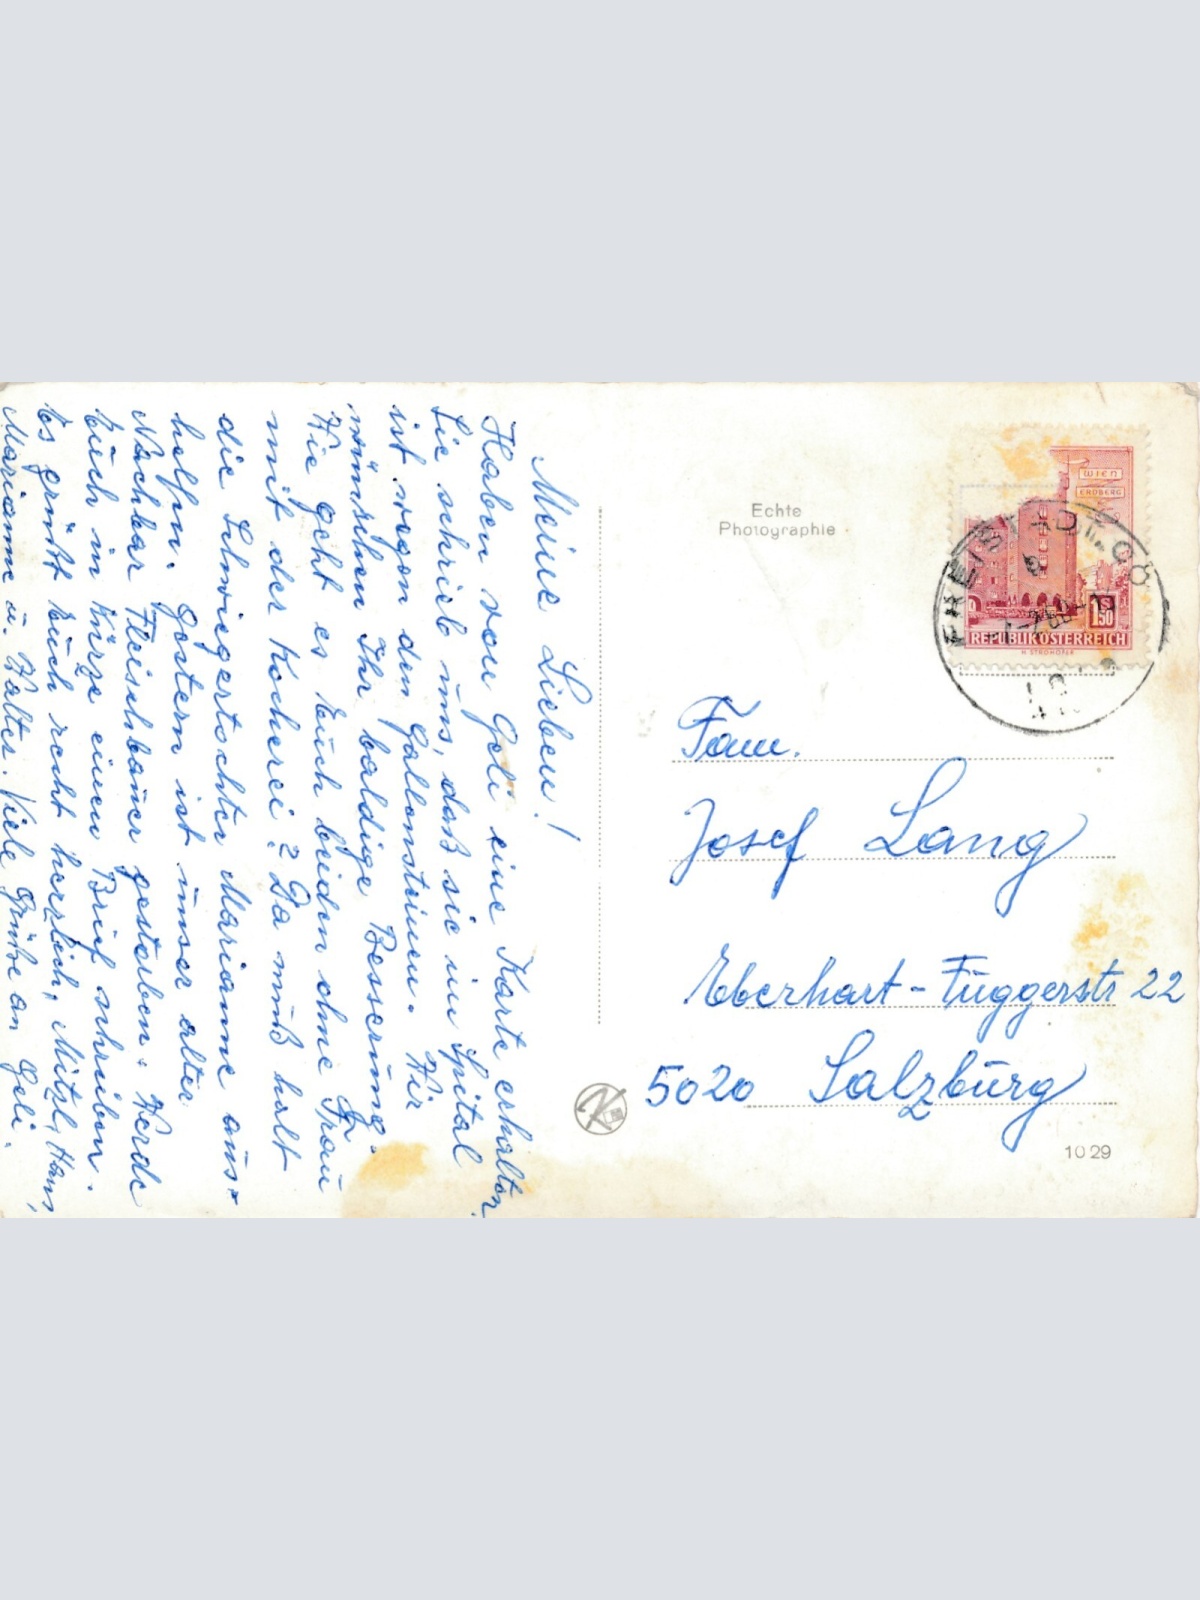 Meine Lieben!
Haben von Geli eine Karte erhalten.
Sie schrieb uns, daß sie im Spital
ist wegen den Gallensteinen. Wir
wünschen Ihr baldige Besserung.
Wie geht es Euch beiden ohne Frau
mit der Kocherei? Da muß halt
die Schwiegertochter Marianne aus-
helfen. Gestern ist unser alter
Nachbar Fleischbauer gestorben. Werde
Euch in Kürze einen Brief schreiben.
Es grüßt Euch recht herzlich, Mitzl, Hans,
Marianne u. Walter. Viele Grüße an Geli.
Echte
Photographie
WIEN
ERDBERG
1.50
REPUBLIK ÖSTERREICH
H STROHOFER
FREISTADT, OÖ
Fam.
Josef Lang
Eberhart-Fuggerstr 22
5020 Salzburg
K
1029